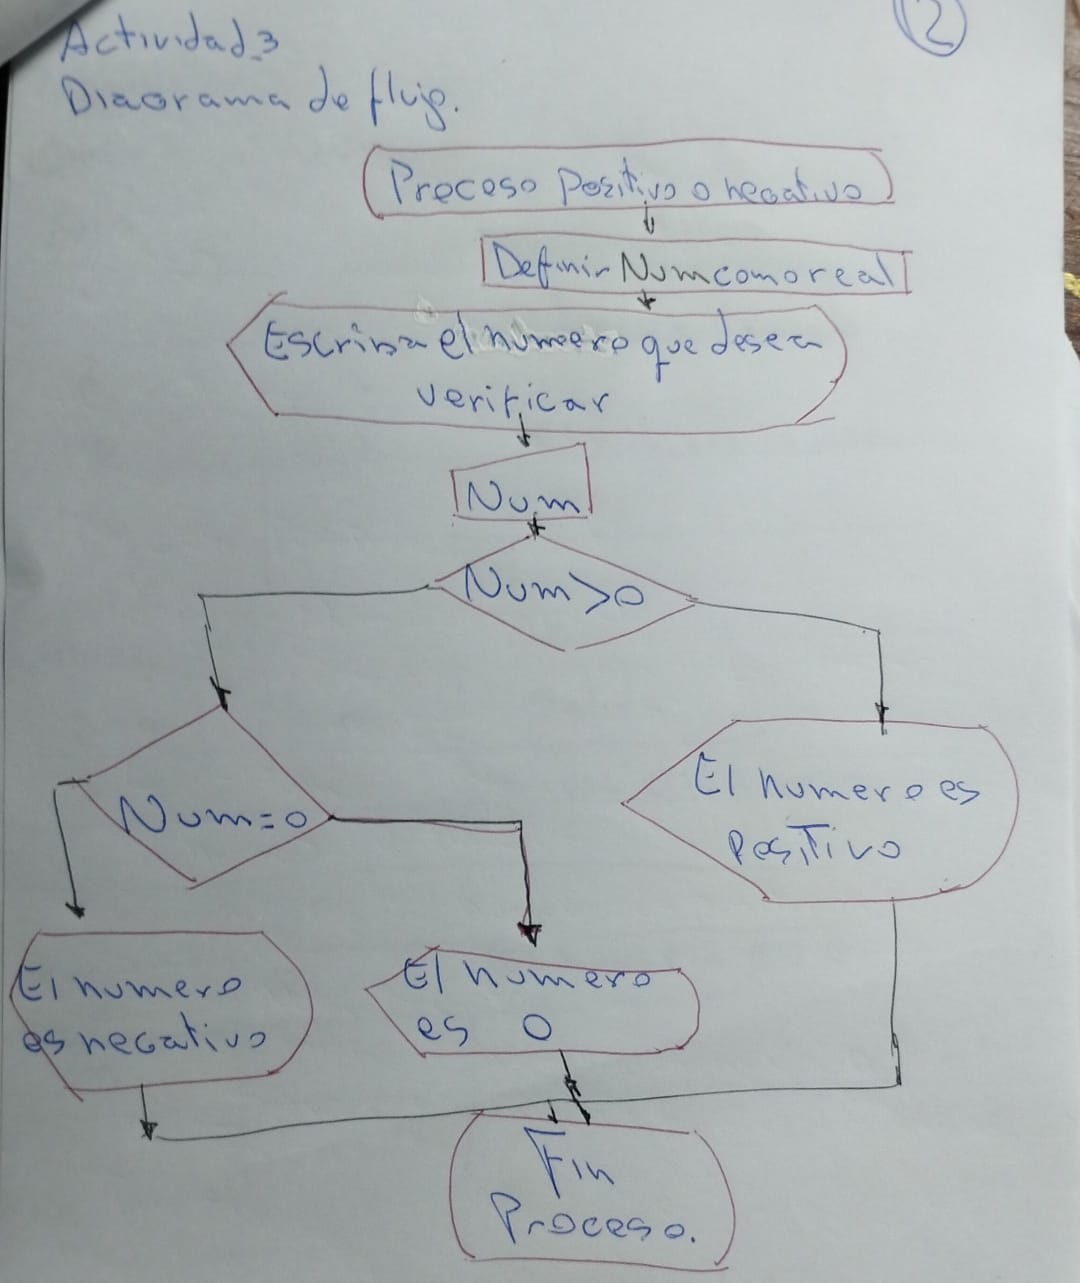 Actividad 3
2
Diagrama de flujo.
Proceso Positivo o negativo
Definir Num como real
Escriba el numero que desea
verificar
Num
Num>0
Num=0
El numero es
Positivo
El numero
es negativo
El numero
es 0
Fin
Proceso.